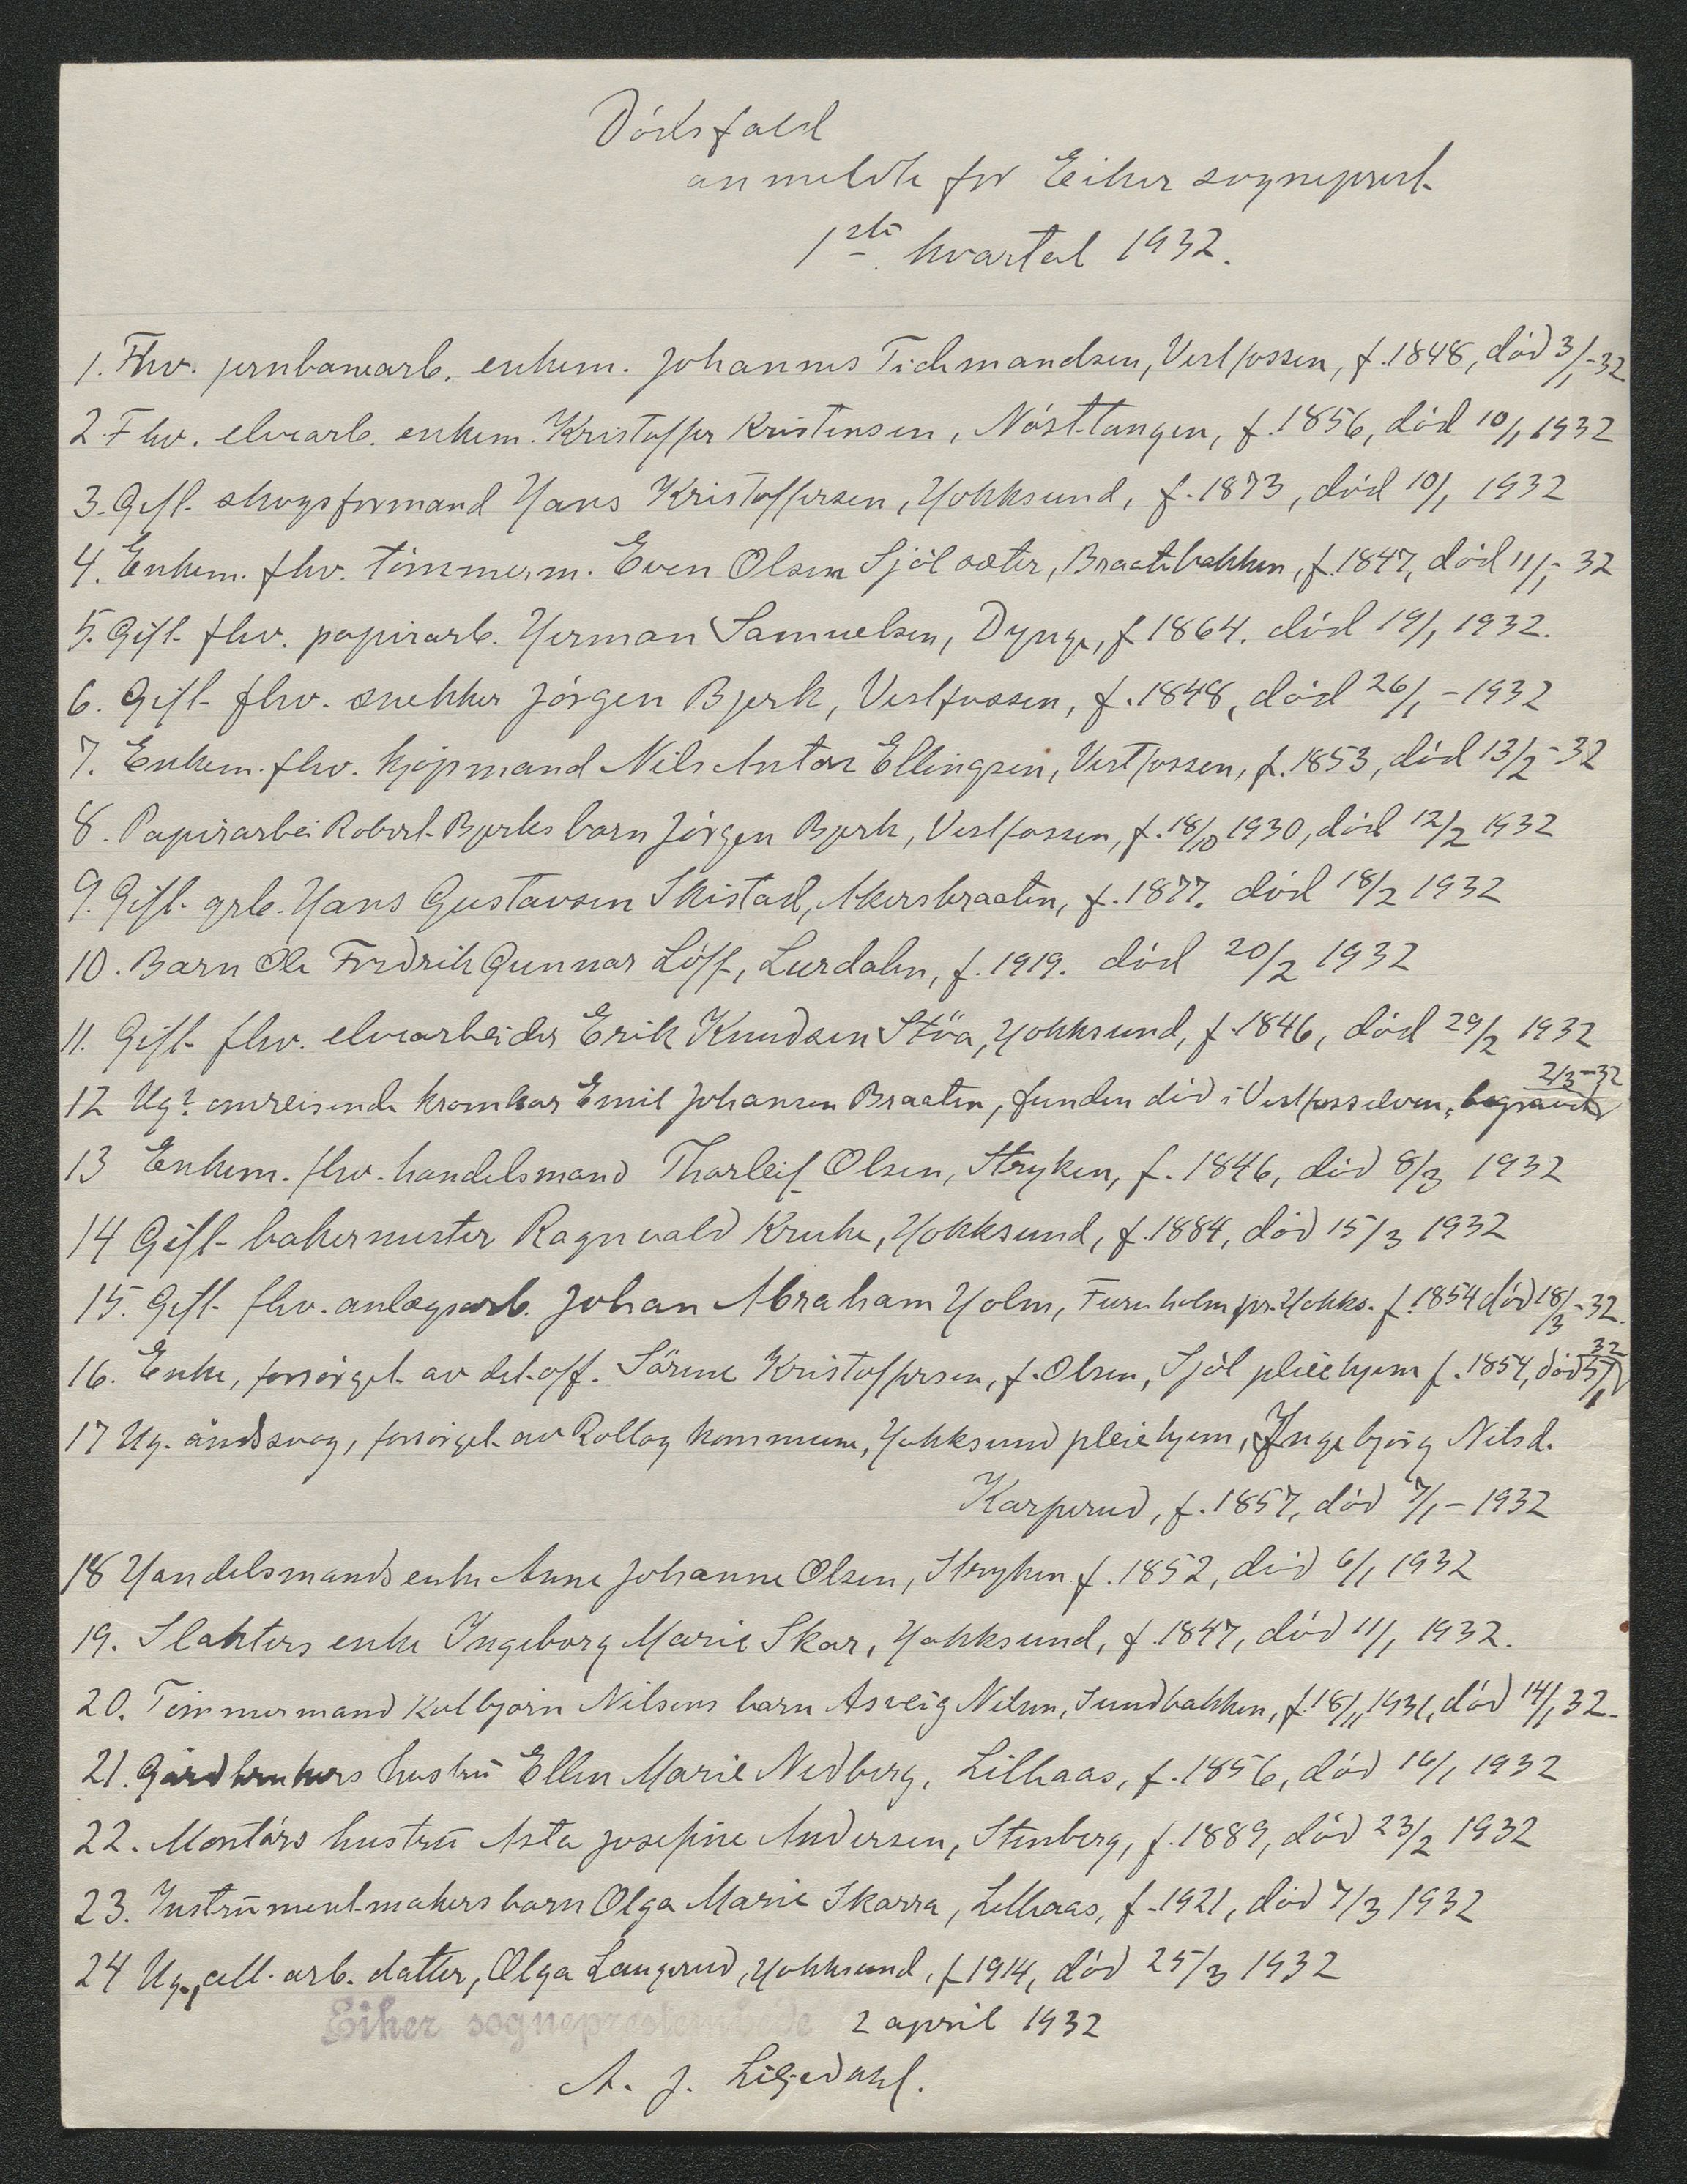 Dödsfald
anmeldte for Eiker sogneprest
1ste kvartal 1932.
1. Fhv. jernbanearb. enkem. Johannes Tichmandsen, Vestfossen, f. 1848, död 3/1-32
2. Fhv. elvearb. enkem. Kristoffer Kristensen, Nösttangen, f. 1856, död 10/1 1932
3. Gift skogsformand Hans Kristoffersen, Hokksund, f. 1873, död 10/1 1932
4. Enkem. fhv. tömmerm. Even Olsen Sjölsæter, Braatebakken, f. 1847, död 11/1-32
5. Gift fhv. papirarb. Herman Samuelsen, Dynge, f 1864. död 19/1 1932.
6. Gift fhv. snekker Jörgen Bjerk, Vestfossen, f. 1848, död 26/1-1932
7. Enkem. fhv. kjøpmand Nils Anton Ellingsen, Vestfossen, f. 1853, död 13/2-32
8. Papirarbei Robert Bjerks barn Jörgen Bjerk, Vestfossen, f. 18/10 1930, död 12/2 1932
9. Gift grb. Hans Gustavsen Skistad, Akersbraaten, f. 1877. död 18/2 1932
10. Barn Ole Fredrik Gunnar Löff, Lurdalen, f. 1919. död 20/2 1932
11. Gift fhv. elvearbeider Erik Knudsen Stöa, Hokksund, f. 1846, död 29/2 1932
12 Ug? omreisende kramkar Emil Johansen Braaten, funden död i Vestfosselven, begravet 2/3-32
13 Enkem. fhv. handelsmand Tharleif Olsen, Stryken, f. 1846, död 8/3 1932
14 Gift bakermester Ragnvald Kruke, Hokksund, f. 1884, död 15/3 1932
15. Gift fhv. anlægsarb. Johan Abraham Holm, Furuholm pr. Hokks. f. 1854 död 18/3-32.
16. Enke, forsörget av det off. Sörine Kristoffersen, f. Olsen, Sjöl pleiehjem f. 1854, död 5/1 32
17 Ug. åndssvag, forsörget av Rollag kommune, Hokksund pleiehjem, Ingebjörg Nilsd.
Karperud, f. 1857, död 7/1-1932
18 Handelsmands enke Anne Johanne Olsen, Stryken f. 1852, död 6/1 1932
19. Slakters enke Ingeborg Marie Skar, Hokksund, f. 1847, död 11/1 1932.
20. Tömmermand Kolbjörn Nilsens barn Asveig Nilsen, Sundbakken, f. 18/11 1931, död 14/1 32.
21. Gårdbrukers hustru Ellen Marie Nedberg, Lilhaas, f. 1856, död 16/1 1932
22. Montörs hustru Asta Josefine Andersen, Stenberg, f. 1889, död 23/2 1932
23. Instrumentmakers barn Olga Marie Skarra, Lilhaas, f. 1921, död 7/3 1932
24 Ug., cell. arb. datter, Olga Langerud, Hokksund, f 1914, död 25/3 1932
Eiker sogneprestembede 2 april 1932
A. J. Liljedahl.